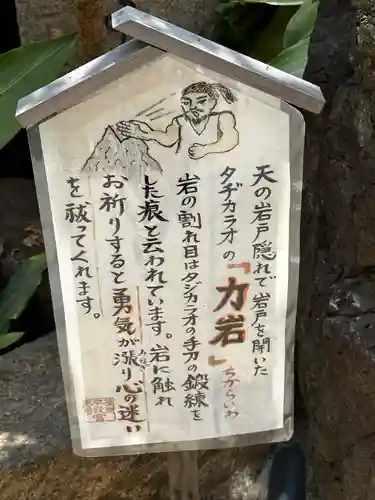 天の岩戸隠れで岩戸を開いた
タヂカラオの「力岩」
ちからいわ
岩の割れ目はタジカラオの手刀の鍛練を
した痕と云われています。岩に触れ
お祈りすると勇気が漲り心の迷い
を祓ってくれます。